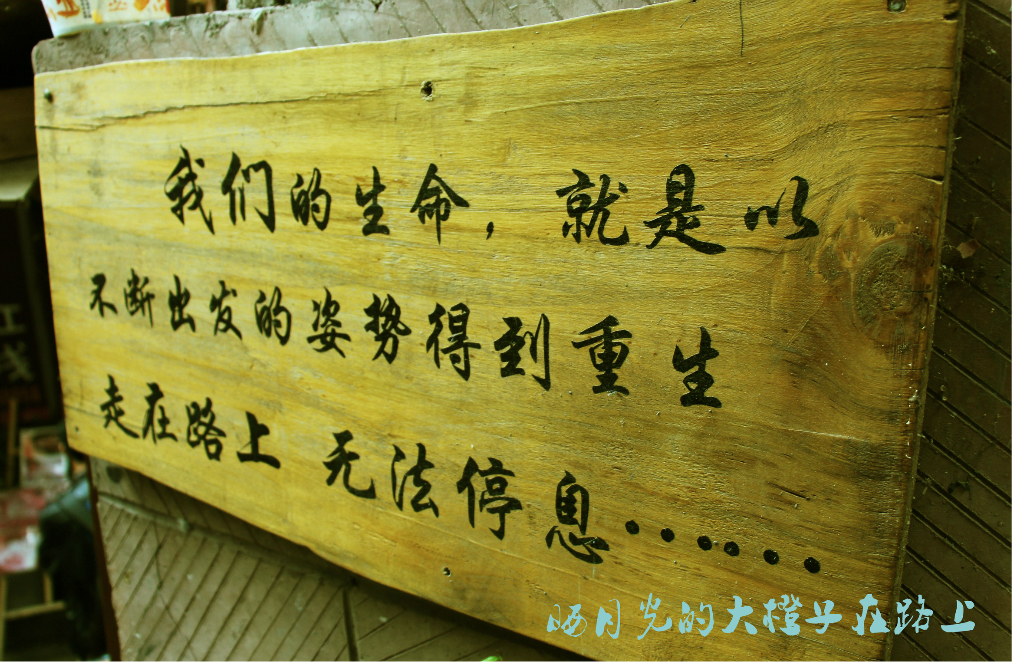 我们的生命，就是以
不断出发的姿势得到重生
走在路上 无法停息……
晒月光的大橙子在路上